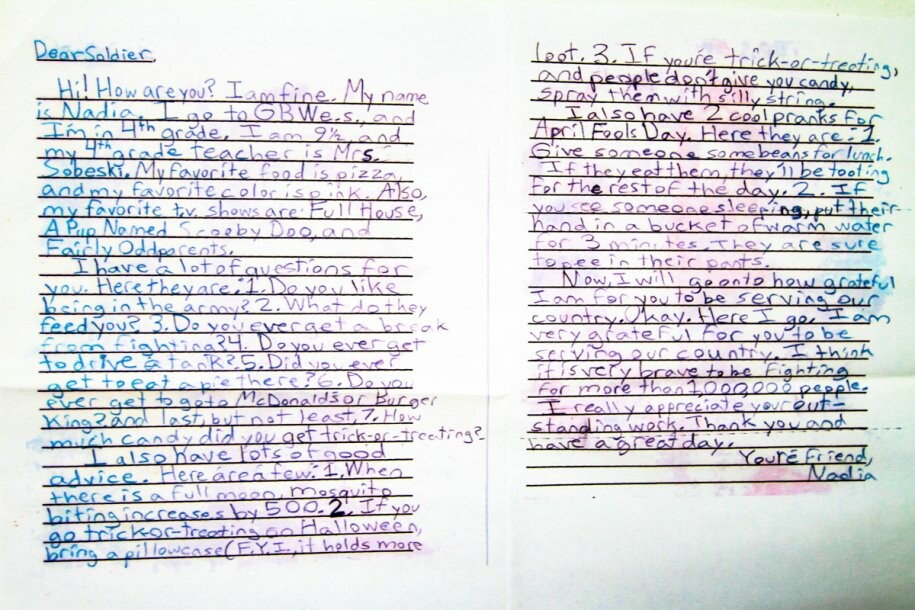 Dear Soldier,
Hi! How are you? I am fine. My name
is Nadia. I go to GBWe.s., and
I'm in 4th grade. I am 9½, and
my 4th grade teacher is Mrs.
Sobeski. My favorite food is pizza,
and my favorite color is pink. Also,
my favorite t.v. shows are: Full House,
A Pup Named Scooby Doo, and
Fairly Oddparents.
I have a lot of questions for
you. Here they are: 1. Do you like
being in the army? 2. What do they
feed you? 3. Do you ever get a break
from fighting? 4. Do you ever get
to drive a tank? 5. Did you ever
get to eat a pie there? 6. Do you
ever get to go to McDonald's or Burger
King? and last, but not least, 7. How
much candy did you get trick-or-treating?
I also have lots of good
advice. Here are a few: 1. When
there is a full moon, mosquito
biting increases by 500. 2. If you
go trick-or-treating on Halloween,
bring a pillowcase (F.Y.I., it holds more
loot. 3. If you're trick-or-treating,
and people don't give you candy,
spray them with silly string.
I also have 2 cool pranks for
April Fools Day. Here they are: 1.
Give someone some beans for lunch.
If they eat them, they'll be tooting
for the rest of the day. 2. If
you see someone sleeping, put their
hand in a bucket of warm water
for 3 minutes. They are sure
to pee in their pants.
Now, I will go on to how grateful
I am for you to be serving our
country. Okay. Here I go. I am
very grateful for you to be
serving our country. I think
it is very brave to be fighting
for more than 1,000,000 people.
I really appreciate your out-
standing work. Thank you and
have a great day.
You're friend,
Nadia